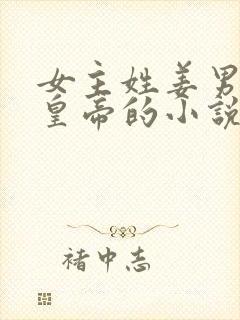 女主姓姜男
皇帝的小説
褚中志